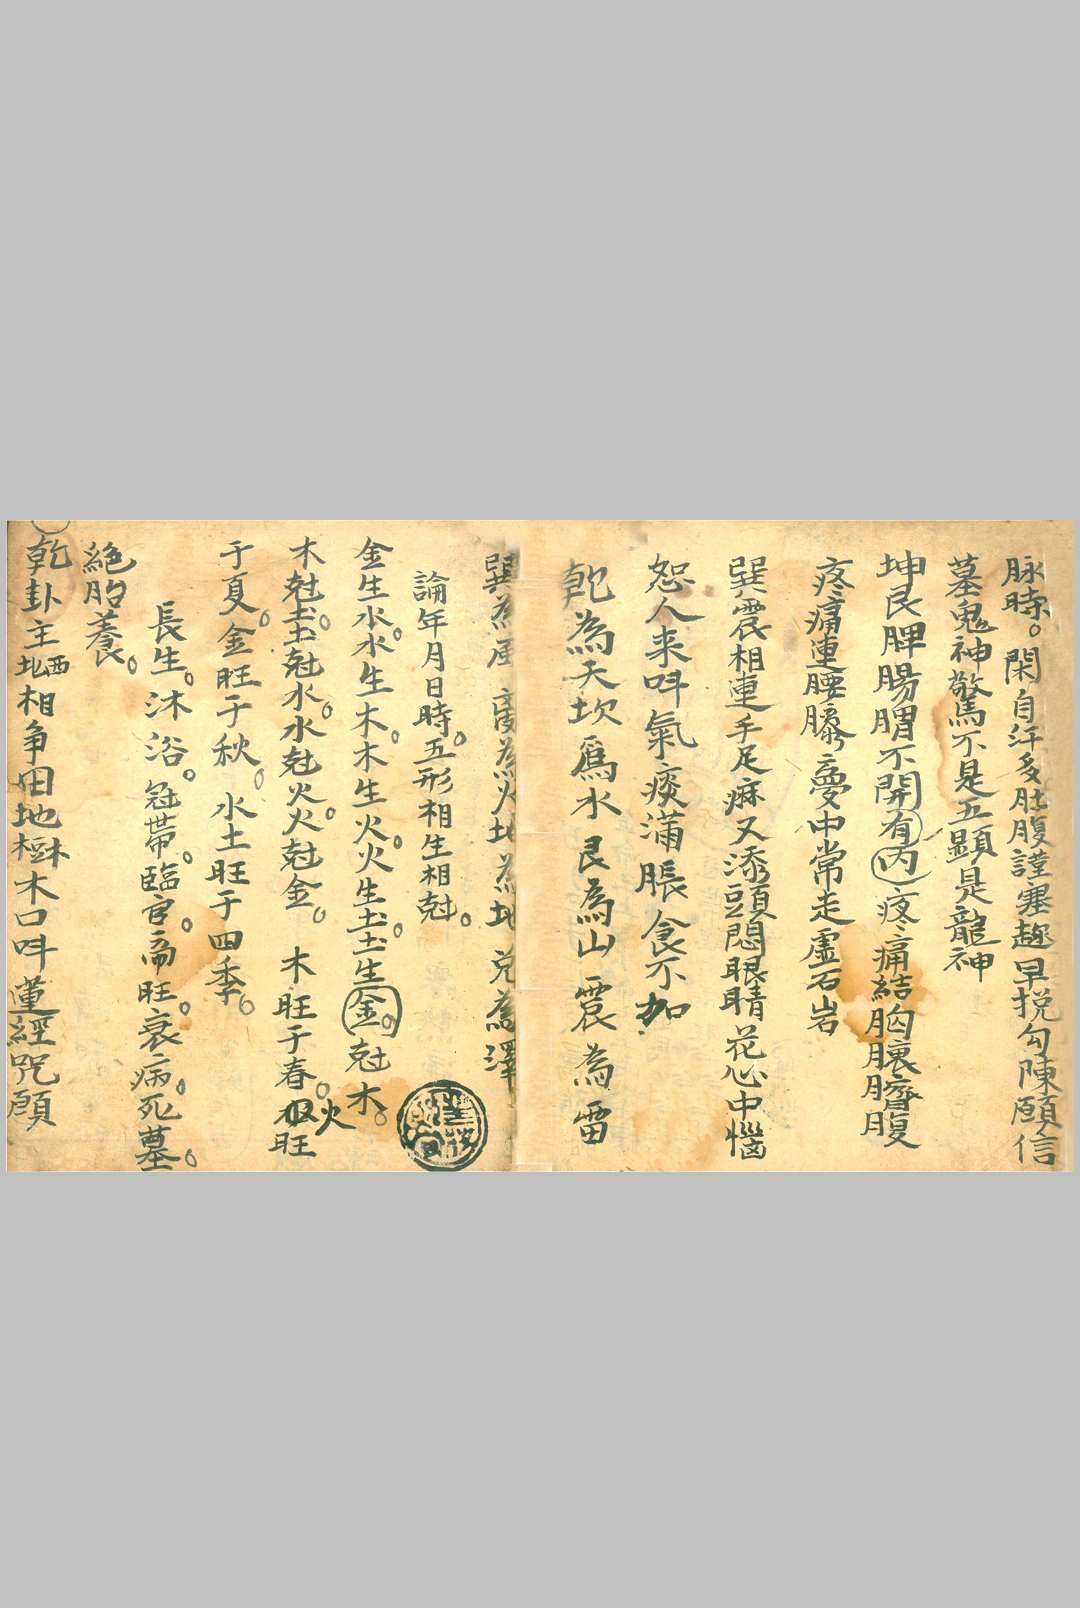 脉時。閑自汗多肚腹謹塞趂早挩勾陳願信
墓鬼神驚不是五顕是龍神
坤艮脾腸胃不開有内疼痛結胸膁臍腹
疼痛連腰膝夢中常走虛石岩
巽震相連手足痲又添頭悶眼睛花心中惱
怨人来呌氣痰滿脹食不加
乾為天坎爲水艮為山震為雷
巽為風 离為火坤為地 兑為澤
論年月日時。五形相生相尅。
金生水。水生木。木生火。火生土。土生金。尅木。
木尅土。土尅水。水尅火。火尅金。 木旺于春。火旺
于夏。金旺于秋。 水土旺于四季。
長生。沐浴。冠帶。臨官。帝旺。衰病。死墓。
絕胎養。
乾卦主西北相争田地樹木口呌葷經咒願